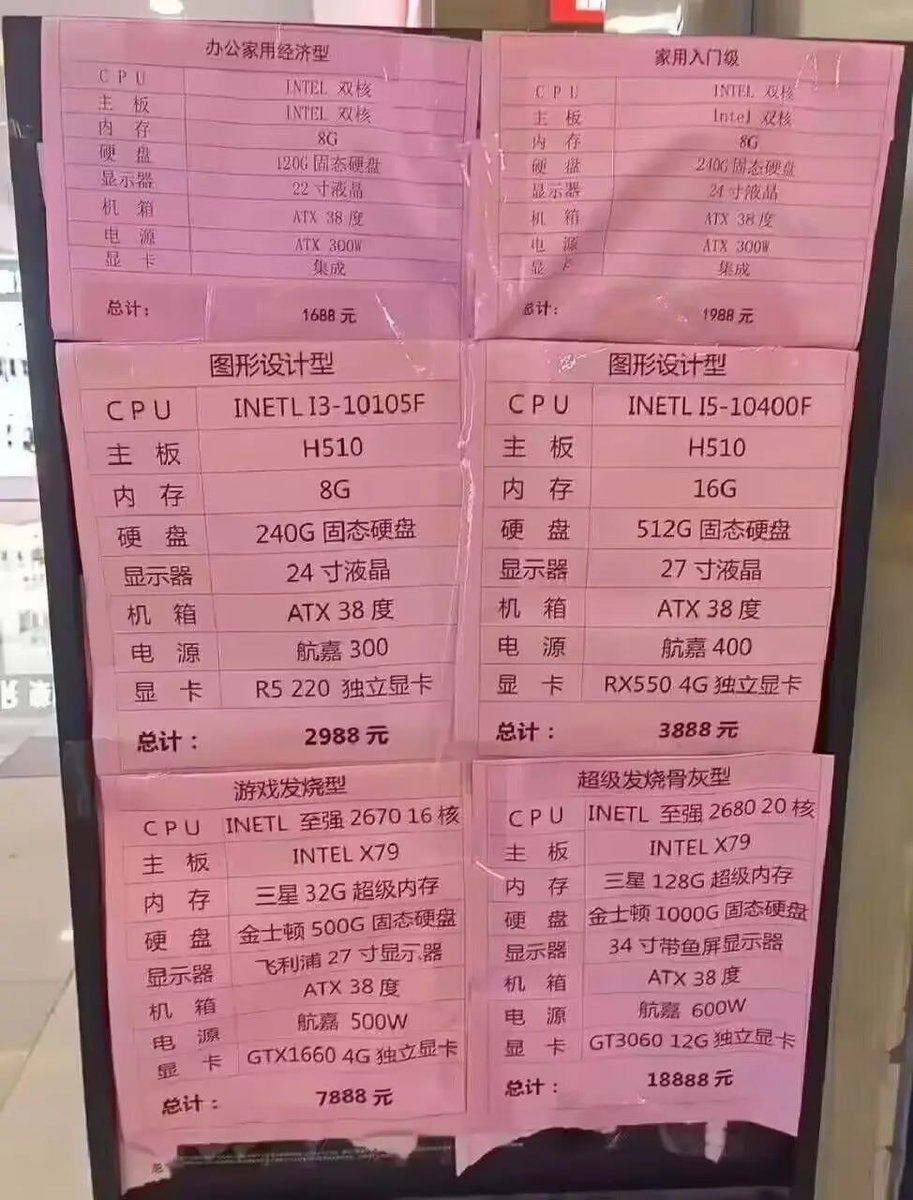 办公家用经济型
CPU INTEL 双核
主板 INTEL 双核
内存 8G
硬盘 120G 固态硬盘
显示器 22 寸液晶
机箱 ATX 38 度
电源 ATX 300W
显卡 集成
总计： 1688 元
家用入门级
CPU INTEL 双核
主板 Intel 双核
内存 8G
硬盘 240G 固态硬盘
显示器 24 寸液晶
机箱 ATX 38 度
电源 ATX 300W
显卡 集成
总计： 1988 元
图形设计型
CPU INETL I3-10105F
主板 H510
内存 8G
硬盘 240G 固态硬盘
显示器 24 寸液晶
机箱 ATX 38 度
电源 航嘉 300
显卡 R5 220 独立显卡
总计： 2988 元
图形设计型
CPU INETL I5-10400F
主板 H510
内存 16G
硬盘 512G 固态硬盘
显示器 27 寸液晶
机箱 ATX 38 度
电源 航嘉 400
显卡 RX550 4G 独立显卡
总计： 3888 元
游戏发烧型
CPU INETL 至强 2670 16 核
主板 INTEL X79
内存 三星 32G 超级内存
硬盘 金士顿 500G 固态硬盘
显示器 飞利浦 27 寸显示器
机箱 ATX 38 度
电源 航嘉 500W
显卡 GTX1660 4G 独立显卡
总计： 7888 元
超级发烧骨灰型
CPU INETL 至强 2680 20 核
主板 INTEL X79
内存 三星 128G 超级内存
硬盘 金士顿 1000G 固态硬盘
显示器 34 寸带鱼屏显示器
机箱 ATX 38 度
电源 航嘉 600W
显卡 GT3060 12G 独立显卡
总计： 18888 元